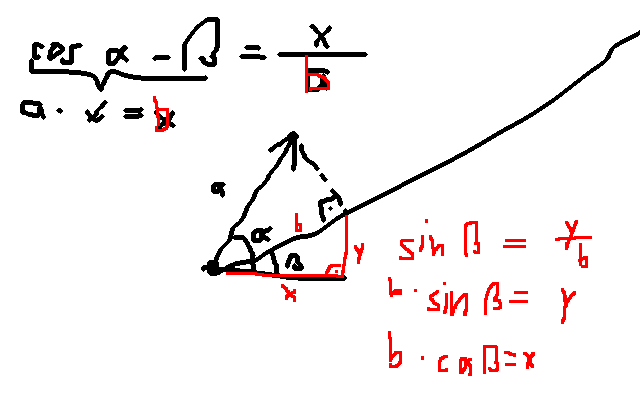 cos α - β = x / b
a · v = b
a
α
b
β
y
x
sin β = y / b
b · sin β = y
b · cos β = x